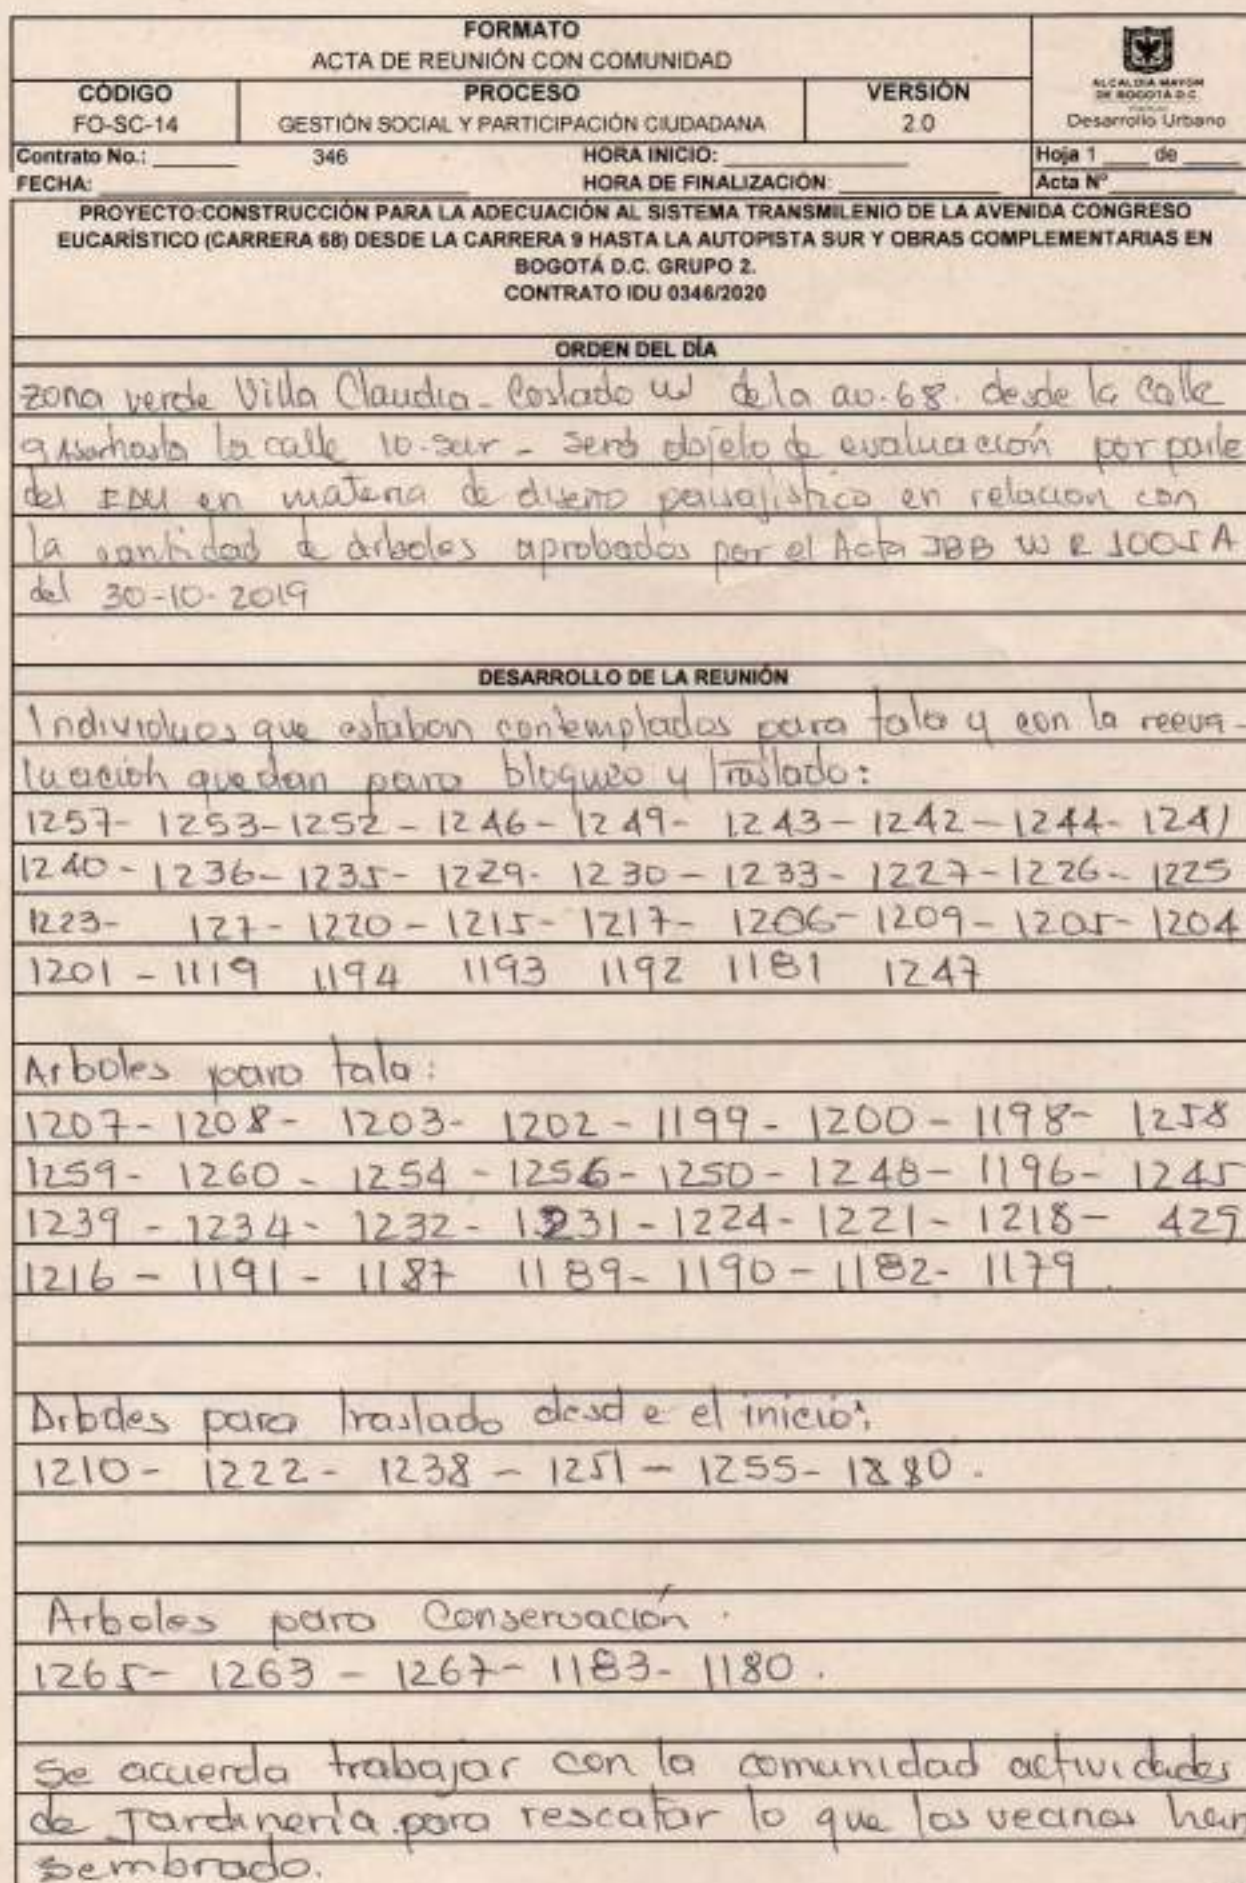 FORMATO
ACTA DE REUNIÓN CON COMUNIDAD
CÓDIGO
FO-SC-14
PROCESO
GESTIÓN SOCIAL Y PARTICIPACIÓN CIUDADANA
VERSIÓN
2.0
ALCALDÍA MAYOR
DE BOGOTÁ D.C.
Desarrollo Urbano
Contrato No.: 346 HORA INICIO: Hoja 1 de
FECHA: HORA DE FINALIZACIÓN: Acta N°
PROYECTO:CONSTRUCCIÓN PARA LA ADECUACIÓN AL SISTEMA TRANSMILENIO DE LA AVENIDA CONGRESO
EUCARÍSTICO (CARRERA 68) DESDE LA CARRERA 9 HASTA LA AUTOPISTA SUR Y OBRAS COMPLEMENTARIAS EN
BOGOTÁ D.C. GRUPO 2.
CONTRATO IDU 0346/2020
ORDEN DEL DÍA
zona verde Villa Claudia - Costado W de la av. 68. desde la Calle
hasta la calle 10-sur - será objeto de evaluación por parte
del IDU en materia de diseño paisajistico en relacion con
la cantidad de árboles aprobados por el Acta JBB W R
del 30-10-2019
DESARROLLO DE LA REUNIÓN
Individuos que estaban contemplados para tala y con la reeva-
luación quedan para bloqueo y traslado:
1257- 1253-1252 - 1246 - 1249- 1243 - 1242 - 1244- 1241
1240 - 1236- 1235- 1229- 1230 - 1233- 1227-1226- 1225
1223- 127- 1220 - 1215- 1217- 1206- 1209 - 1205- 1204
1201 - 1119 1194 1193 1192 1181 1247
Arboles para tala:
1207- 1208- 1203- 1202 - 1199 - 1200 - 1198- 1258
1259- 1260 - 1254 - 1256- 1250 - 1248- 1196- 1245
1239 - 1234- 1232 - 1231 - 1224- 1221- 1218- 429
1216 - 1191 - 1187 1189- 1190 - 1182- 1179.
Arboles para traslado desde el inicio:
1210- 1222 - 1238 - 1251 - 1255-
Arboles para Conservación.
1265- 1263 - 1267- 1183- 1180.
Se acuerda trabajar con la comunidad actividades
de Jardinería para rescatar lo que los vecinos han
sembrado.